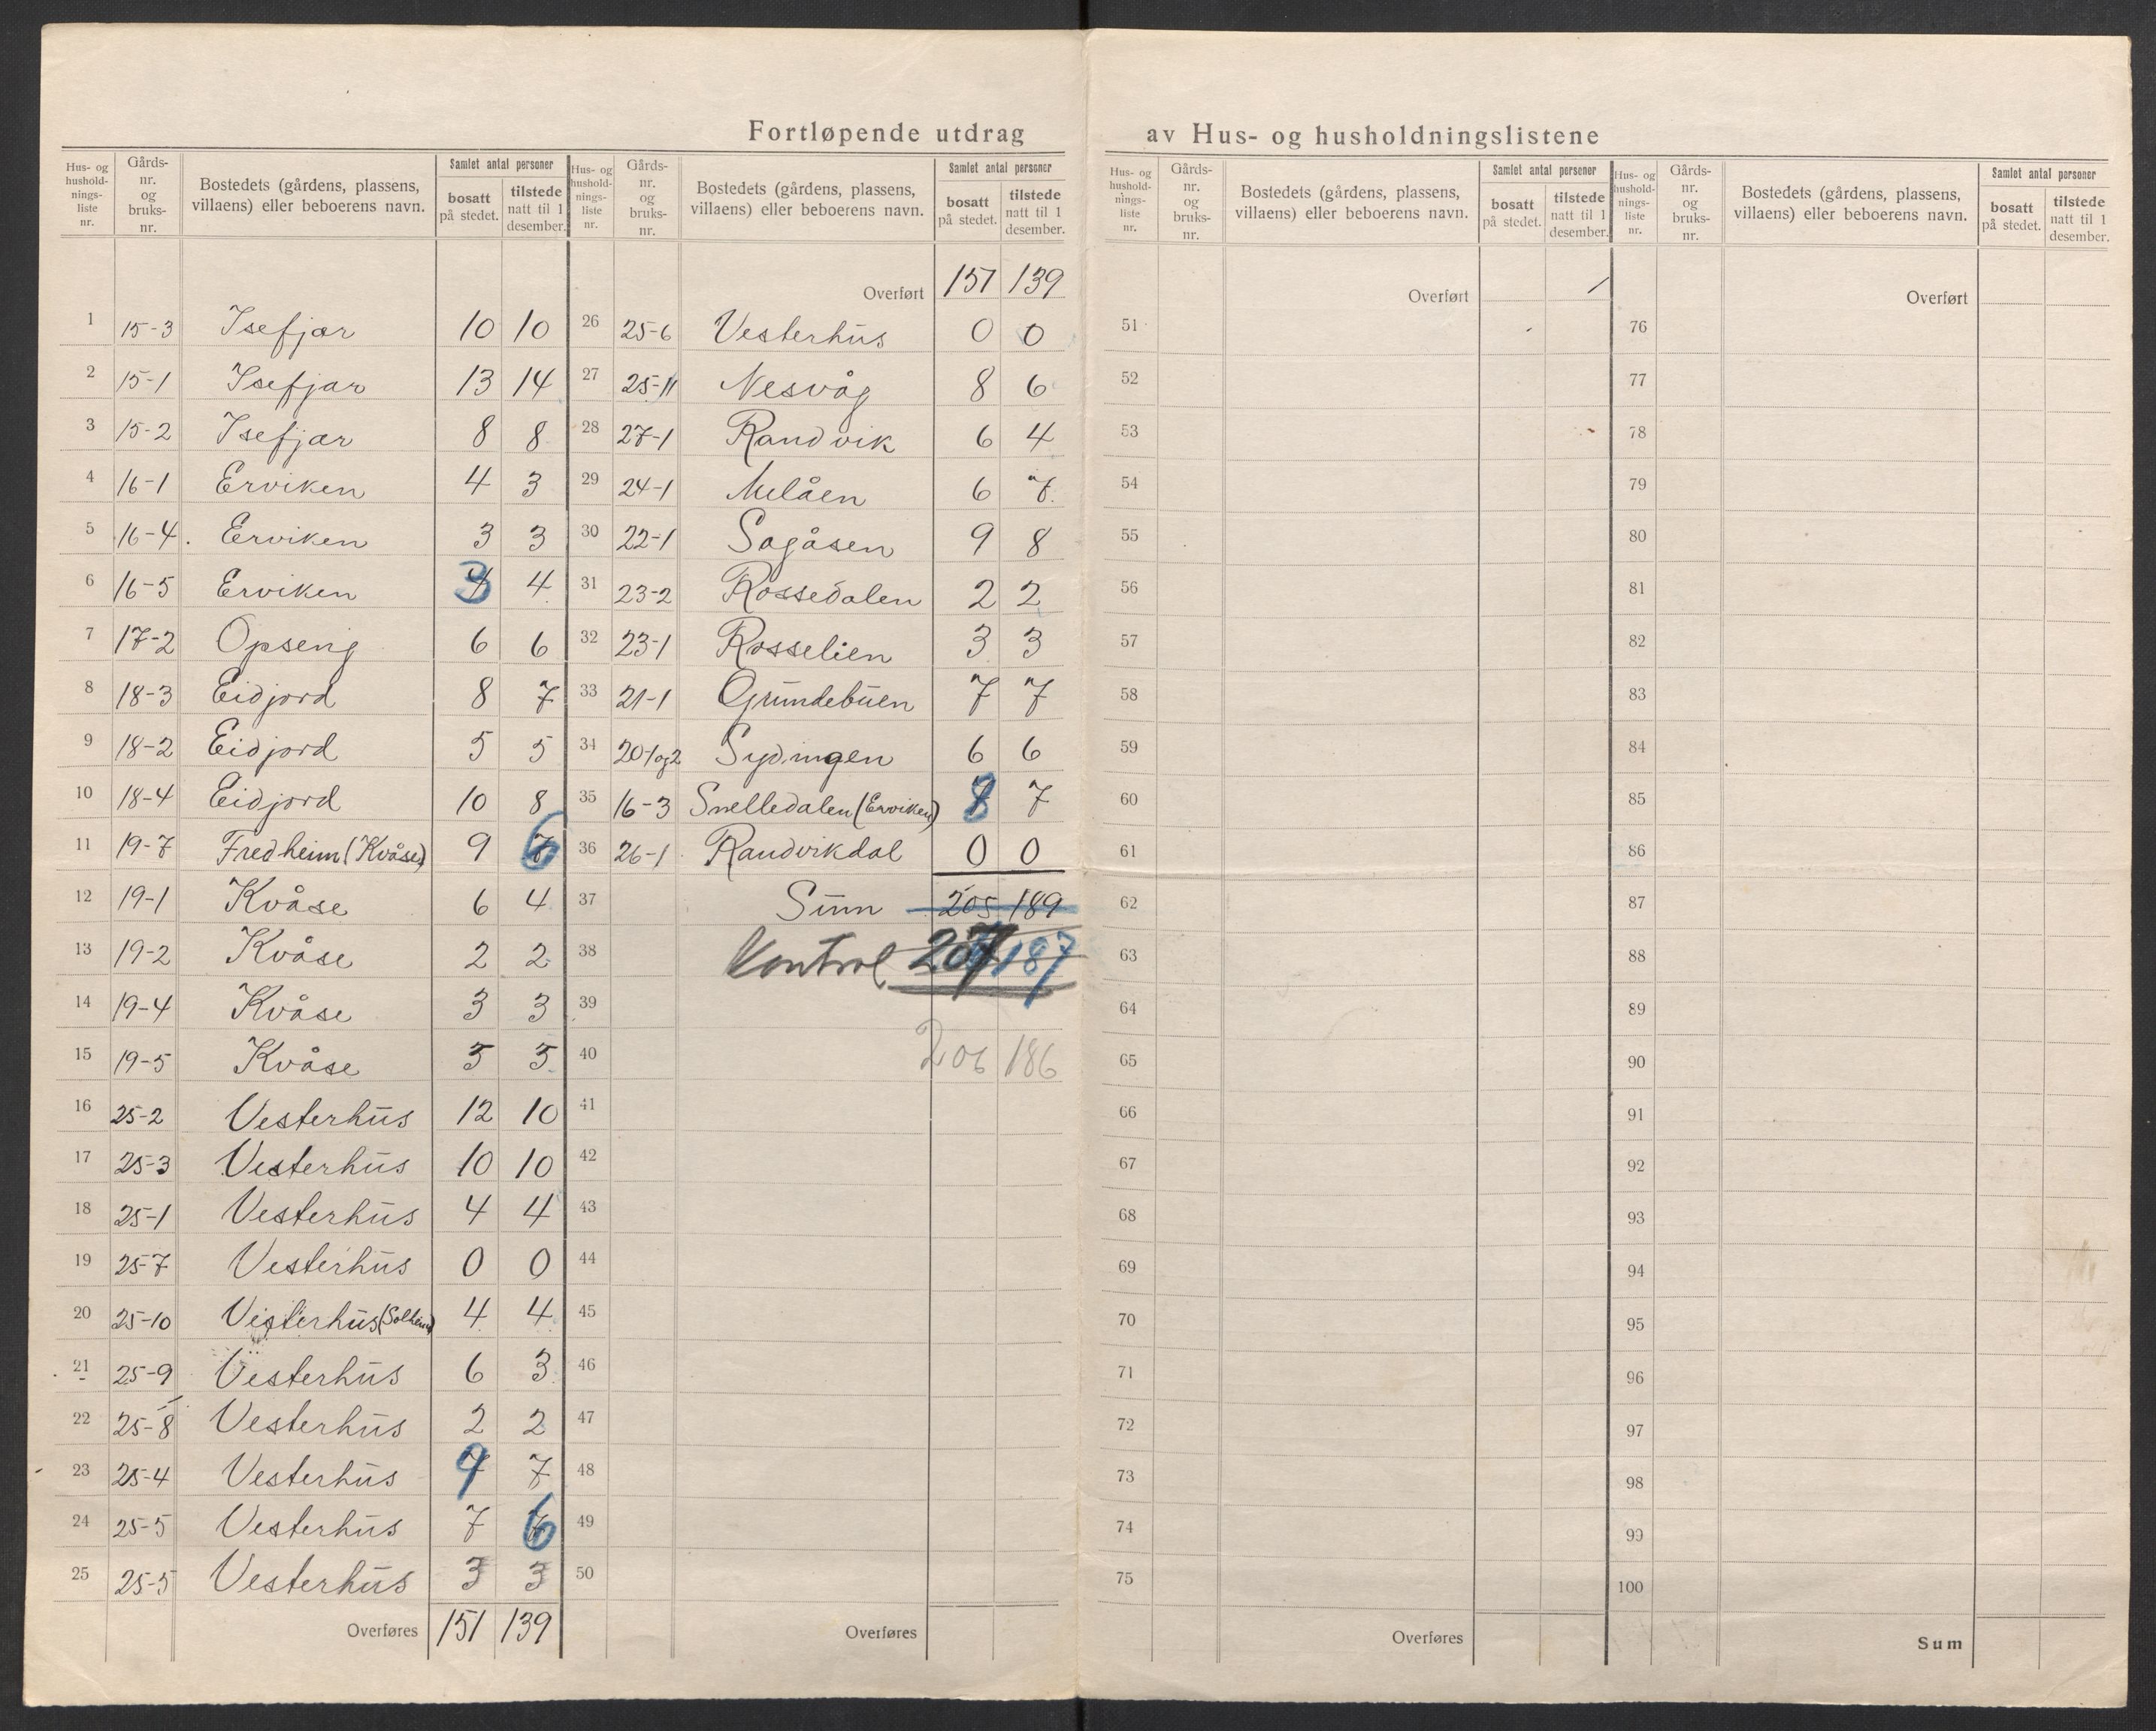 Fortløpende utdrag av Hus- og husholdningslistene
Hus- og husholdnings-liste nr. | Gårds-nr. og bruks-nr. | Bostedets (gårdens, plassens, villaens) eller beboerens navn. | Samlet antal personer | bosatt på stedet. | tilstede natt til 1 desember.
1 15-3 Isefjær 10 10
2 15-1 Isefjær 13 14
3 15-2 Isefjær 8 8
4 16-1 Erviken 4 3
5 16-4. Erviken 3 3
6 16-5 Erviken 3 4
7 17-2 Opseng 6 6
8 18-3 Eidjord 8 7
9 18-2 Eidjord 5 5
10 18-4 Eidjord 10 8
11 19-7 Fredheim (Kvåse) 9 6
12 19-1 Kvåse 6 4
13 19-2 Kvåse 2 2
14 19-4 Kvåse 3 3
15 19-5 Kvåse 5 5
16 25-2 Vesterhus 12 10
17 25-3 Vesterhus 10 10
18 25-1 Vesterhus 4 4
19 25-7 Vesterhus 0 0
20 25-10 Vesterhus (Solheim) 4 4
21 25-9 Vesterhus 6 3
22 25-8 Vesterhus 2 2
23 25-4 Vesterhus 9 7
24 25-5 Vesterhus 7 6
25 25-5 Vesterhus 3 3
Overføres 151 139
Hus- og husholdnings-liste nr. | Gårds-nr. og bruks-nr. | Bostedets (gårdens, plassens, villaens) eller beboerens navn. | Samlet antal personer | bosatt på stedet. | tilstede natt til 1 desember.
Overført 151 139
26 25-6 Vesterhus 0 0
27 25-11 Nesvåg 8 6
28 27-1 Randvik 6 4
29 24-1 Melåen 6 7
30 22-1 Sagåsen 9 8
31 23-2 Rossedalen 2 2
32 23-1 Rosselien 3 3
33 21-1 Grundebuen 7 7
34 20-1og2 Sydingen 6 6
35 16-3 Snelledalen (Erviken) 8 7
36 26-1 Randvikdal 0 0
37 Sum 205 189
38 Kontrol 207 187
39
40 206 186
41
42
43
44
45
46
47
48
49
50
Overføres
Hus- og husholdnings-liste nr. | Gårds-nr. og bruks-nr. | Bostedets (gårdens, plassens, villaens) eller beboerens navn. | Samlet antal personer | bosatt på stedet. | tilstede natt til 1 desember.
Overført
51
52
53
54
55
56
57
58
59
60
61
62
63
64
65
66
67
68
69
70
71
72
73
74
75
Overføres
Hus- og husholdnings-liste nr. | Gårds-nr. og bruks-nr. | Bostedets (gårdens, plassens, villaens) eller beboerens navn. | Samlet antal personer | bosatt på stedet. | tilstede natt til 1 desember.
Overført
76
77
78
79
80
81
82
83
84
85
86
87
88
89
90
91
92
93
94
95
96
97
98
99
100
Sum